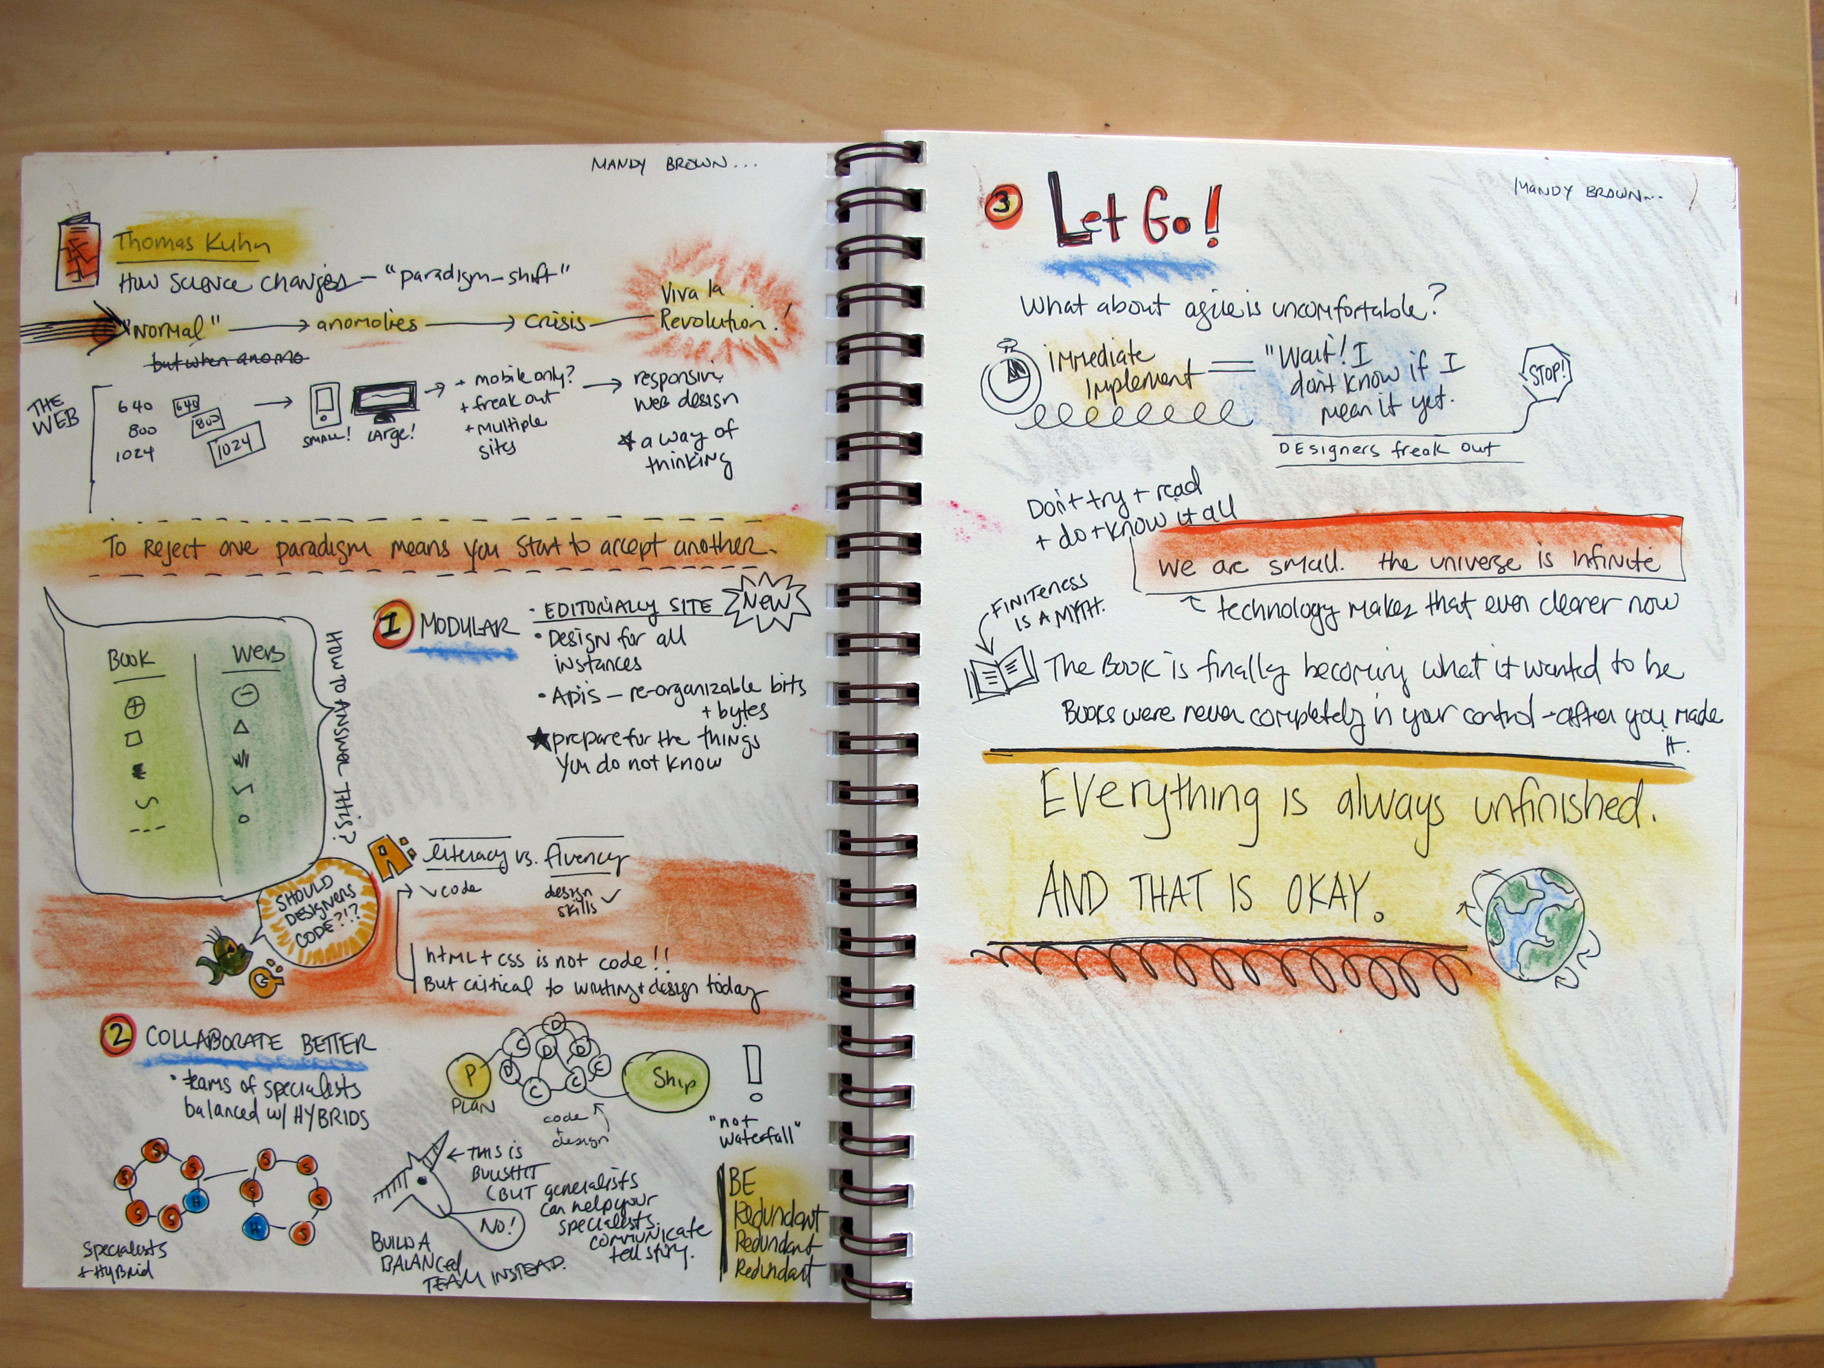 MANDY BROWN...
Thomas Kuhn
How Science Changes — "paradigm-shift"
"Normal" → anomolies → Crisis — Viva la
Revolution!
but when anomo
THE
WEB
640
800
1024
640
800
1024
SMALL!
LARGE!
+ mobile only?
+ freak out
+ multiple
sites
responsive
web design
★ a way of
thinking
To Reject one paradigm means you start to accept another.
Book
Web
HOW TO ANSWER THIS?
1 MODULAR
• EDITORIALLY SITE
NEW
• Design for all
instances
• APIs — re-organizable bits
+ bytes
★ prepare for the things
you do not know
SHOULD
DESIGNERS
CODE?!?
Q:
A:
literacy vs. fluency
✓ code
design ✓
skills
HTML + CSS is not code!!
But critical to writing + design today
2 COLLABORATE BETTER
• teams of specialists
balanced w/ HYBRIDS
P
PLAN
D
C D D
D C C C
Ship
code
+
design
!
"not
waterfall"
S S S S S H
S S S S S H
specialists
+ HyBrid
← THIS IS
BULLSHIT
(BUT generalists
can help your
specialists
communicate
tell story.
NO!
BUILD A
BALANCED
TEAM INSTEAD.
BE
Redundant
Redundant
Redundant
MANDY BROWN...
3 Let Go!
What about agile is uncomfortable?
immediate
implement = "Wait! I
don't know if I
mean it yet.
STOP!
DESigners freak out
Don't try + read
+ do + know it all
we are small. the universe is infinite
↑ technology makes that even clearer now
FINITENESS
IS A MYTH.
The Book is finally becoming what it wanted to be
Books were never completely in your control - after you made
it.
EVerything is always unfinished.
AND THAT IS OKAY.